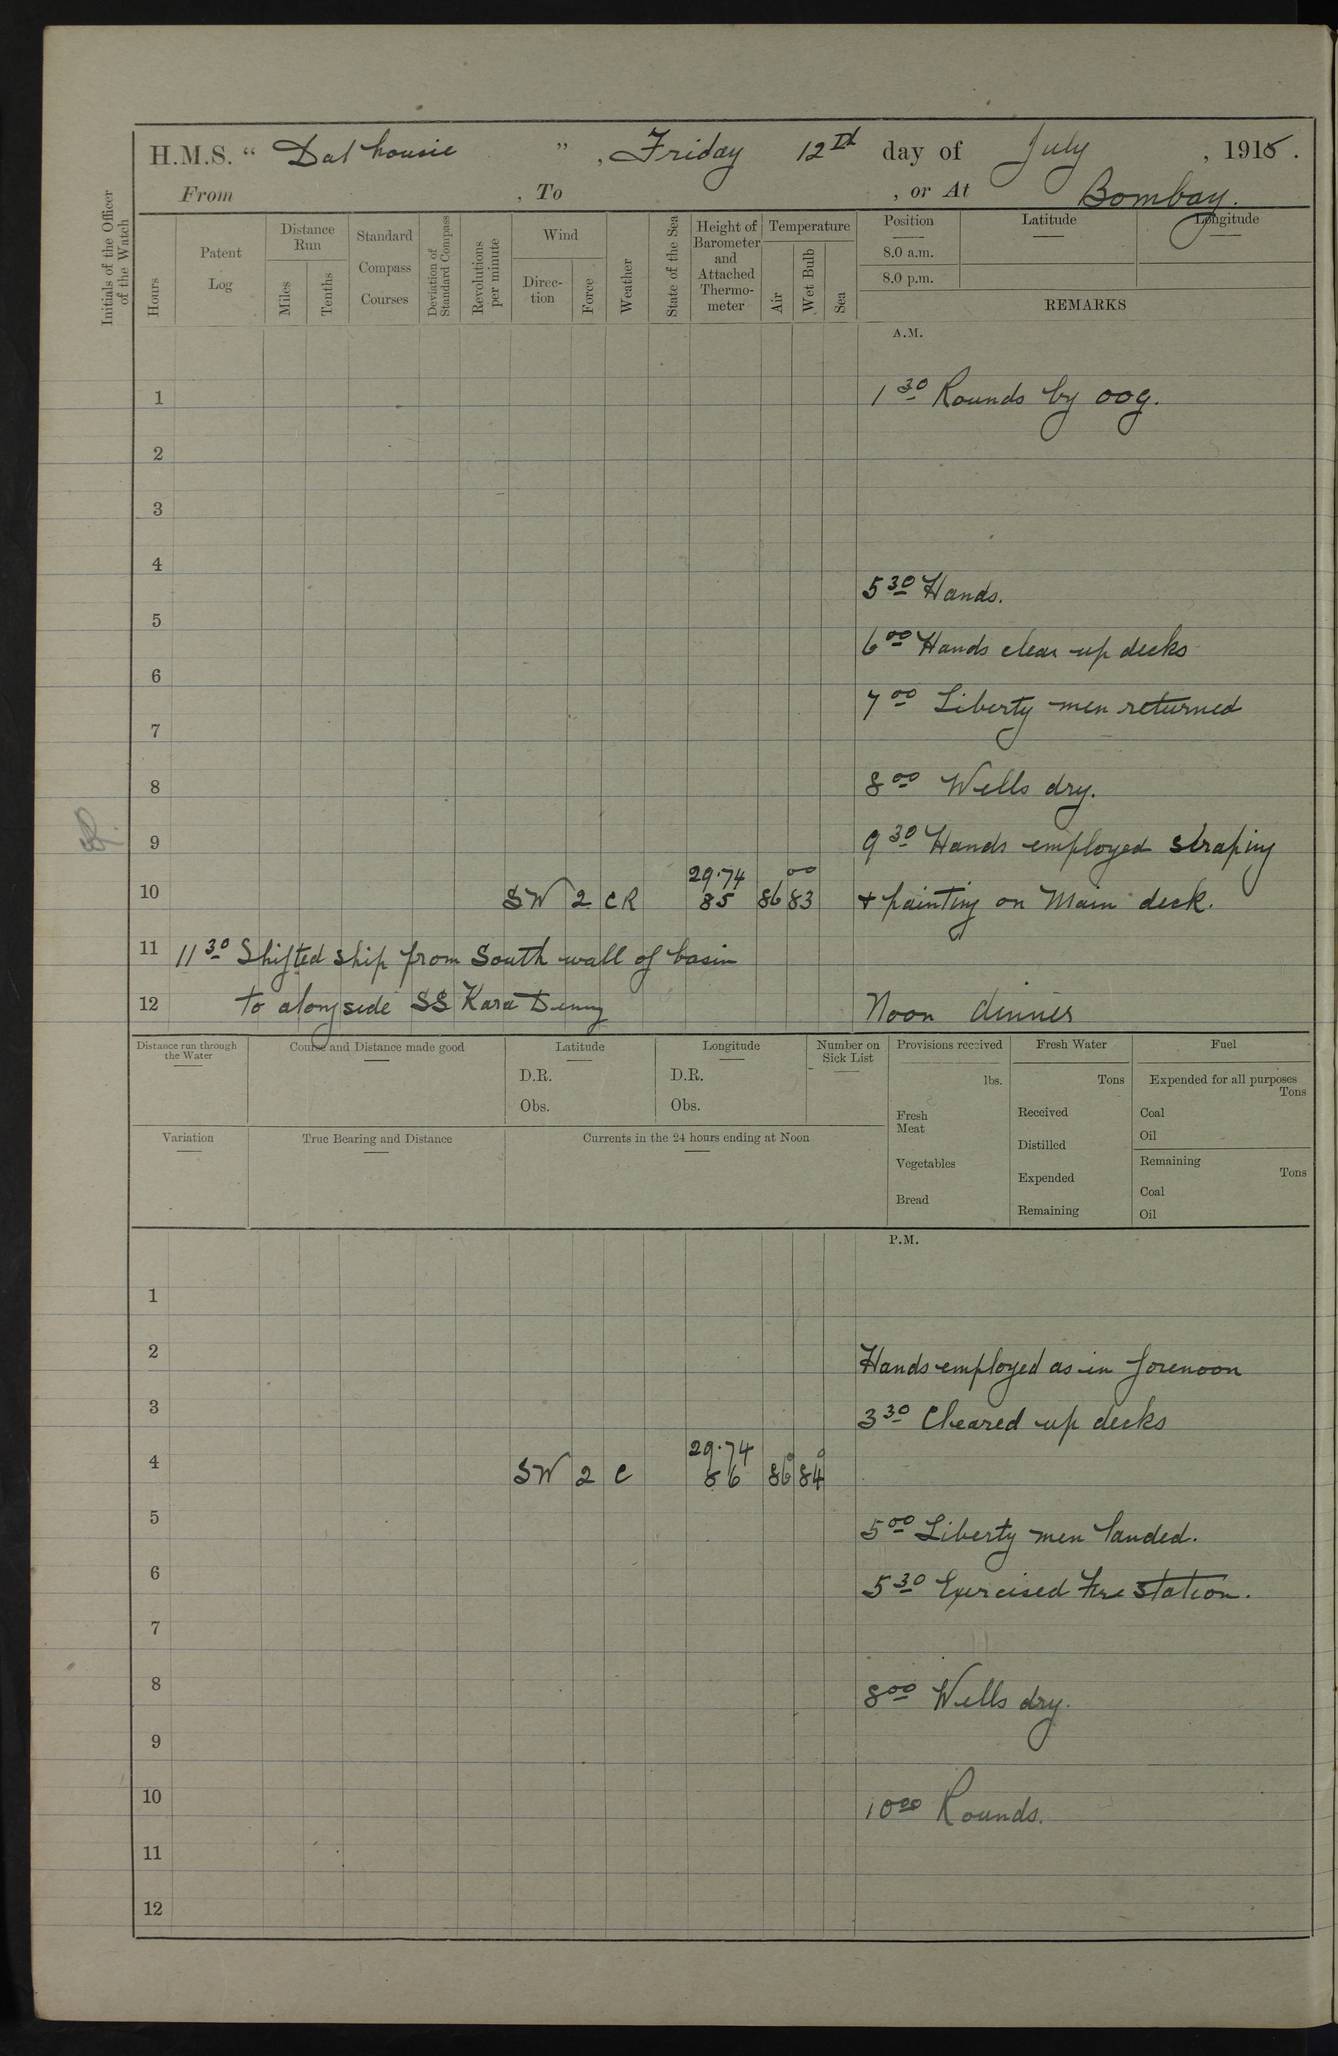 H.M.S. “ Dalhousie ”, Friday 12th day of July, 1915.
From , To , or At Bombay.
Initials of the Officer of the Watch
Hours
Patent Log
Distance Run
Miles
Tenths
Standard Compass Courses
Deviation of Standard Compass
Revolutions per minute
Wind
Direction
Force
Weather
State of the Sea
Height of Barometer and Attached Thermometer
Temperature
Air
Wet Bulb
Sea
Position Latitude Longitude
8.0 a.m.
8.0 p.m.
REMARKS
A.M.
1 1 30 Rounds by OOG.
2
3
4
5 30 Hands.
5
6 00 Hands clear up decks
6
7 00 Liberty men returned
7
8 8 00 Wells dry.
9 9 30 Hands employed straping
29.74 00
10 SW 2 CR 85 86 83 + painting on Main deck.
11 11 30 Shifted ship from South wall of basin
12 to alongside SS Kara Deniz Noon dinner
Distance run through the Water
Course and Distance made good
Latitude
D.R.
Obs.
Longitude
D.R.
Obs.
Number on Sick List
Variation
True Bearing and Distance
Currents in the 24 hours ending at Noon
Provisions received
lbs.
Fresh Meat
Vegetables
Bread
Fresh Water
Tons
Received
Distilled
Expended
Remaining
Fuel
Expended for all purposes
Tons
Coal
Oil
Remaining
Tons
Coal
Oil
P.M.
1
2 Hands employed as in forenoon
3 3 30 Cleared up decks
29.74
4 SW 2 C 86 86° 84°
5 5 00 Liberty men landed.
6 5 30 Exercised Fire Station.
7
8 8 00 Wells dry.
9
10 10 00 Rounds.
11
12